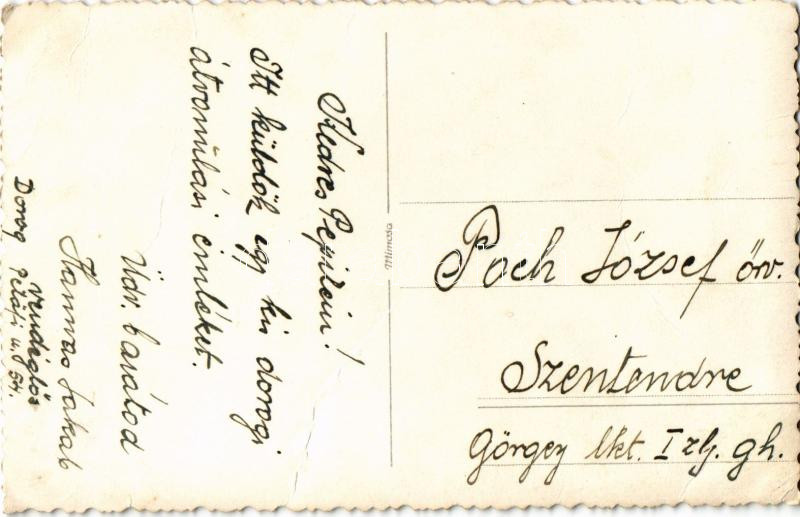 Kedves Pepikém!
Itt küldök egy kis dorogi
átvonulási emléket.
Üdv. barátod
Hamvas Jakab
Vendéglős
Dorog Petőfi u. 54.
Mimosa
Poch József őrv.
Szentendre
Görgey lkt. I zlj. gh.